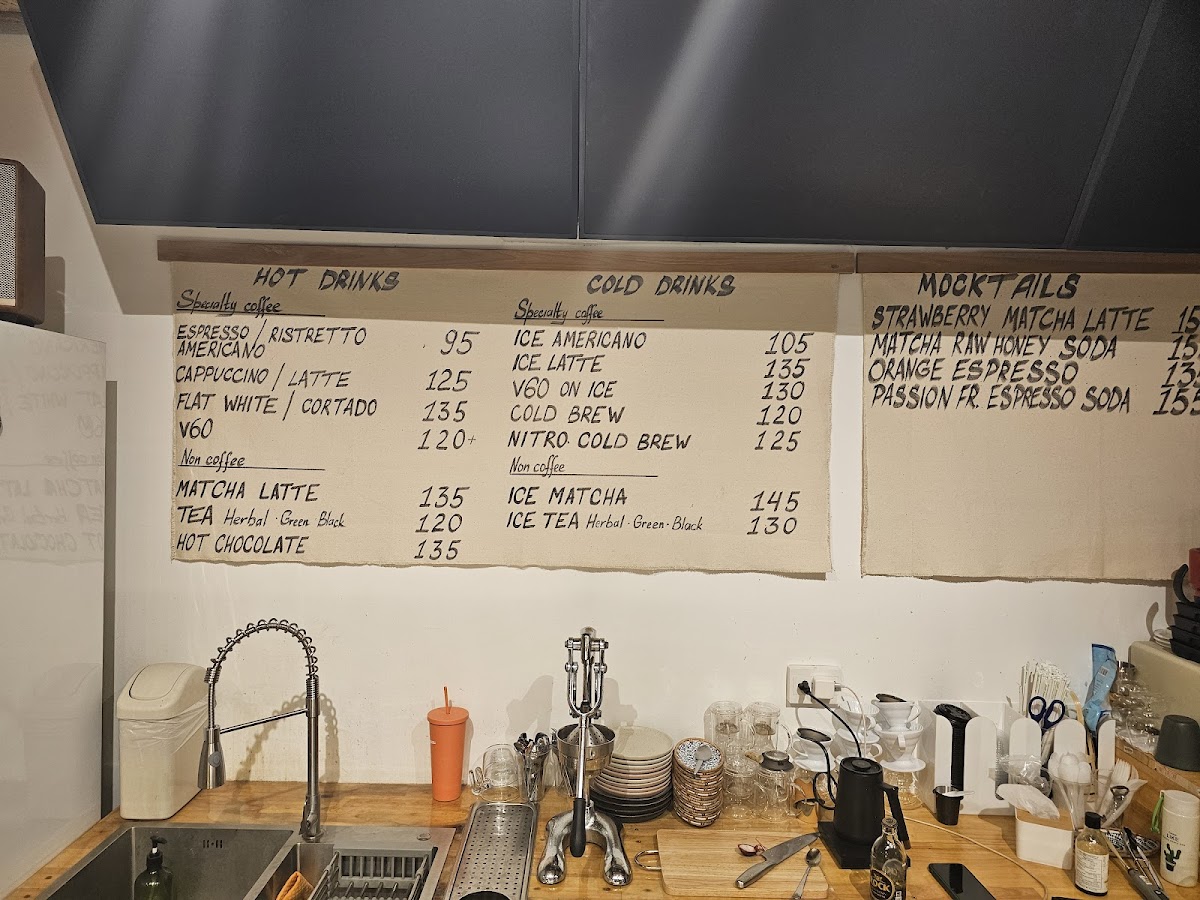 HOT DRINKS
Specialty coffee
ESPRESSO / RISTRETTO
AMERICANO 95
CAPPUCCINO / LATTE 125
FLAT WHITE / CORTADO 135
V60 120+
Non coffee
MATCHA LATTE 135
TEA Herbal · Green Black 120
HOT CHOCOLATE 135
COLD DRINKS
Specialty coffee
ICE AMERICANO 105
ICE LATTE 135
V60 ON ICE 130
COLD BREW 120
NITRO COLD BREW 125
Non coffee
ICE MATCHA 145
ICE TEA Herbal · Green · Black 130
MOCKTAILS
STRAWBERRY MATCHA LATTE
MATCHA RAW HONEY SODA
ORANGE ESPRESSO 135
PASSION FR. ESPRESSO SODA 155